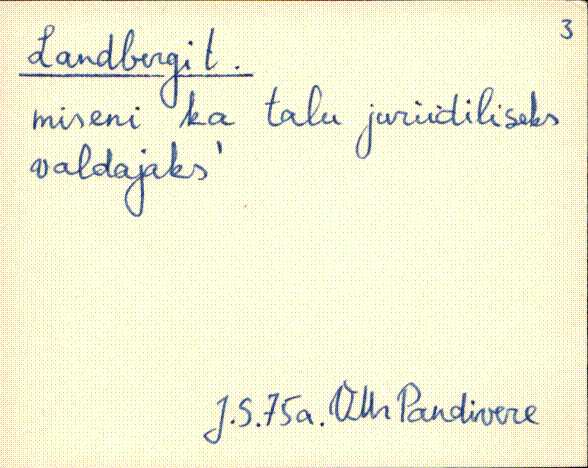 3
Landbergi t.
miseni ka talu juriidiliseks
valdajaks'
J.S. 75a. Pandivere